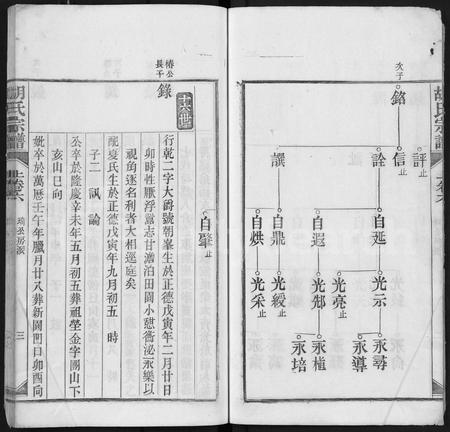 胡氏宗譜
次子
銘
評止
信止
詮
譔
自延
自遐
自鼎
自烘
自肇止
光示
光亮止
光郜
光綬止
光采止
永尋
永導
永植
永培
十六世
椿公長子
錄
行乾二字大爵號朝峯生於正德戊寅年二月廿日
卯時性厭浮囂志甘澹泊田園小憩衡泌永樂以
視角逐名利者大相逕庭矣
配夏氏生於正德戊寅年九月初五 時
子二 諷 論
公卒於隆慶辛未年五月初五葬祖塋金字團山下
亥山巳向
妣卒於萬曆壬午年臘月廿八葬新園凹日卯酉向
胡氏宗譜
卷六
公房派
三